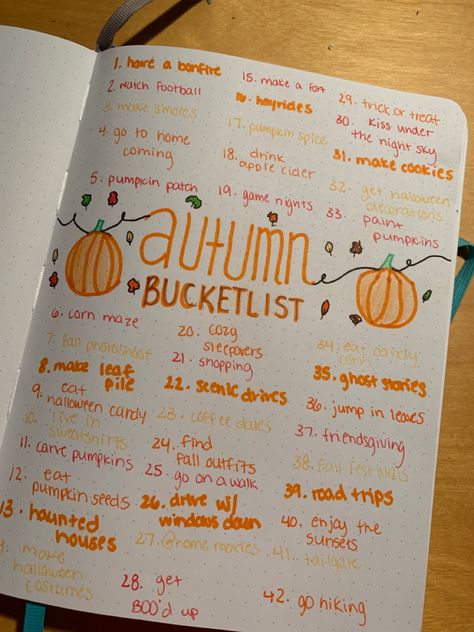 1. have a bonfire
2. watch football
3. make s'mores
4. go to home
coming
5. pumpkin patch
15. make a fort
16. hayrides
17. pumpkin spice
18. drink
apple cider
19. game nights
29. trick or treat
30. kiss under
the night sky
31. make cookies
32. get halloween
decorations
33. paint
pumpkins
autumn
BUCKETLIST
6. corn maze
7. fall photoshoot
8. make leaf
pile
9. eat
halloween candy
10. live in
sweatshirts
11. carve pumpkins
12. eat
pumpkin seeds
13. haunted
houses
make
halloween
costumes
20. cozy
sleepovers
21. shopping
22. scenic drives
23. coffee dates
24. find
fall outfits
25. go on a walk
26. drive w/
windows down
27. @home movies
28. get
BOO'd up
34. eat candy
corn
35. ghost stories
36. jump in leaves
37. friendsgiving
38. fall festivals
39. road trips
40. enjoy the
sunsets
41. tailgate
42. go hiking